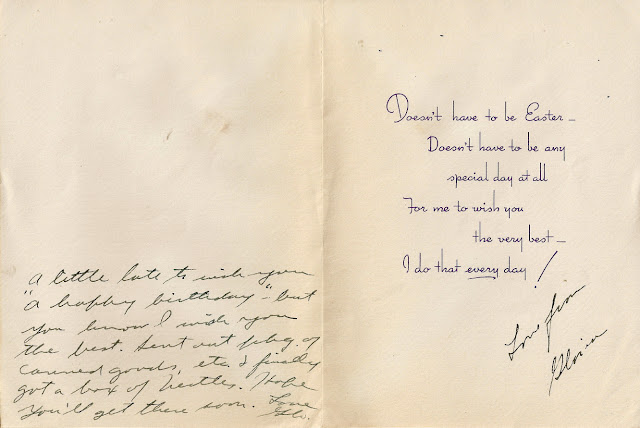 A little late to wish you
"a happy birthday" - but
you know I wish you
the best. Sent out pkg. of
canned goods, etc. & finally
got a box of Nestles. Hope
You'll get there soon. Love
Glo.
Doesn't have to be Easter —
Doesn't have to be any
special day at all
For me to wish you
the very best —
I do that every day!
Love from
Gloria